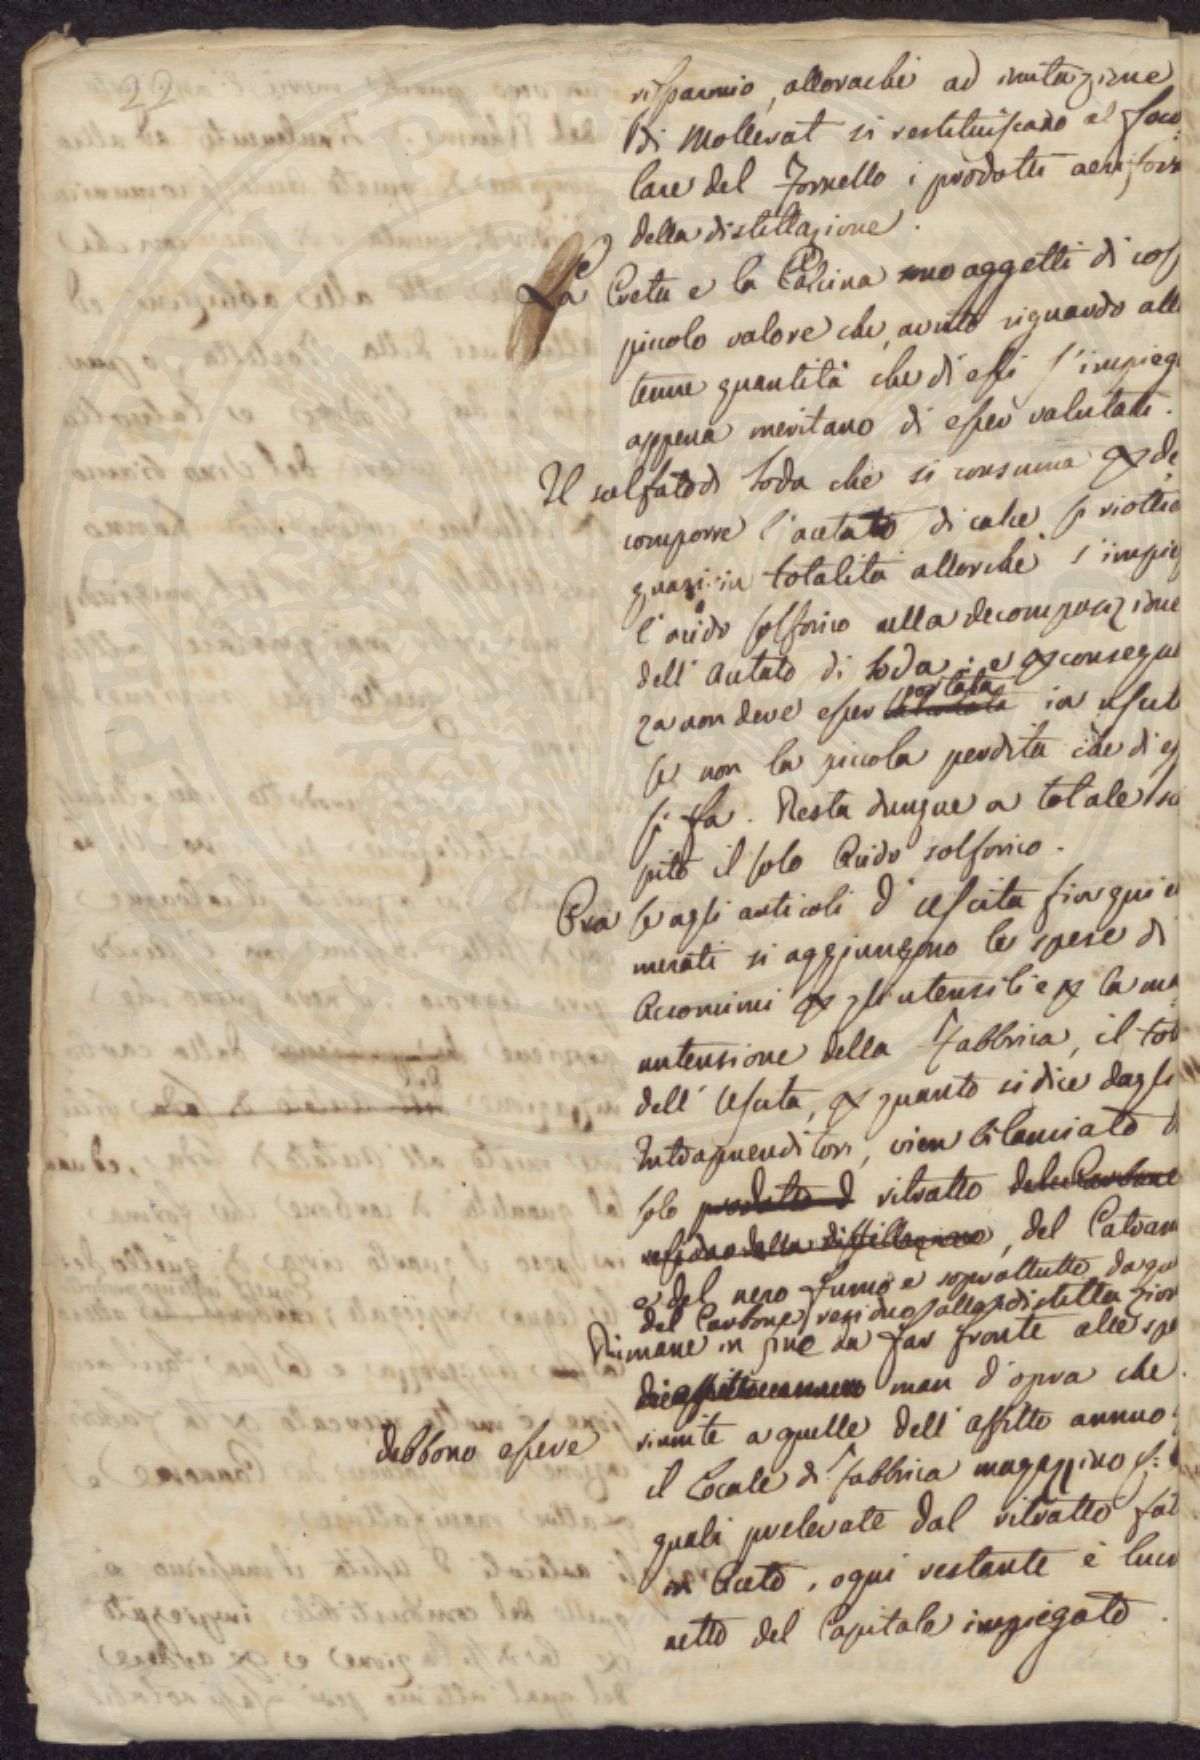 22
risparmio, allorachè ad imitazione
di Mollerat si restituiscano al foco
lare del Fornello i prodotti aeriform
della distillazione.
La Creta e la Calcina sono oggetti di cos
piccolo valore che, avuto riguardo alla
tenue quantità che di essi s'impieg
appena meritano di esser valutati.
Il solfato di Soda che si consuma per de
comporre l'acetato di calce si riottie
quasi in totalità allorchè s'impieg
l'acido solforico nella decomposizione
dell'Acetato di Soda; e per consegue
za non deve esser portata in uscit
se non la piccola perdita che di es
si fa. Resta dunque a totale sca
pito il solo Acido solforico.
Ora se agli articoli d'Uscita fin qui e
merati si aggiungono le spese di
Acconcimi per gli utensili e per la ma
nutensione della Fabbrica, il tot
dell'Uscita, per quanto si dice dagli
Intraprenditori, vien bilanciato d
solo prodotto d ritratto del Carbone
residuo della distillazione, del Catram
e del nero fumo e soprattutto da qu
del Carbone residuo dalla distillazion
Rimane in fine da far fronte alle spe
man d'opra che
riunite a quelle dell'affitto annuo
debbono essere
il Locale di Fabbrica magazzino
quali prelevate dal ritratto fat
in Aceto, ogni restante è lucr
netto del Capitale impiegato.